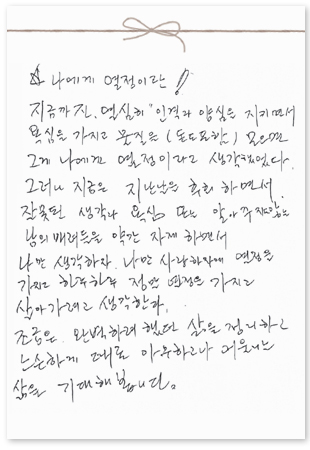 ☆ 나에게 열정이란!
지금까진, 열심히 "인격과 양심을 지키면서
욕심을 가지고 물질을 (돈도포함) 모으면
그게 나에겐 열정이라고 생각했었다.
그러나 지금은 지난날을 후회 하면서.
잘못된 생각과 욕심 또는 알아주지않는
남의 배려등을 약간 자제 하면서
나만 생각하자. 나만 사랑하자에 열정을
가지고 하루하루 정말 열정을 가지고
살아가려고 생각한다.
조금은. 완벽하려 했던 삶을 정리하고
느슨하게 때로 아우르고 어울리는
삶을 기대해봅니다.